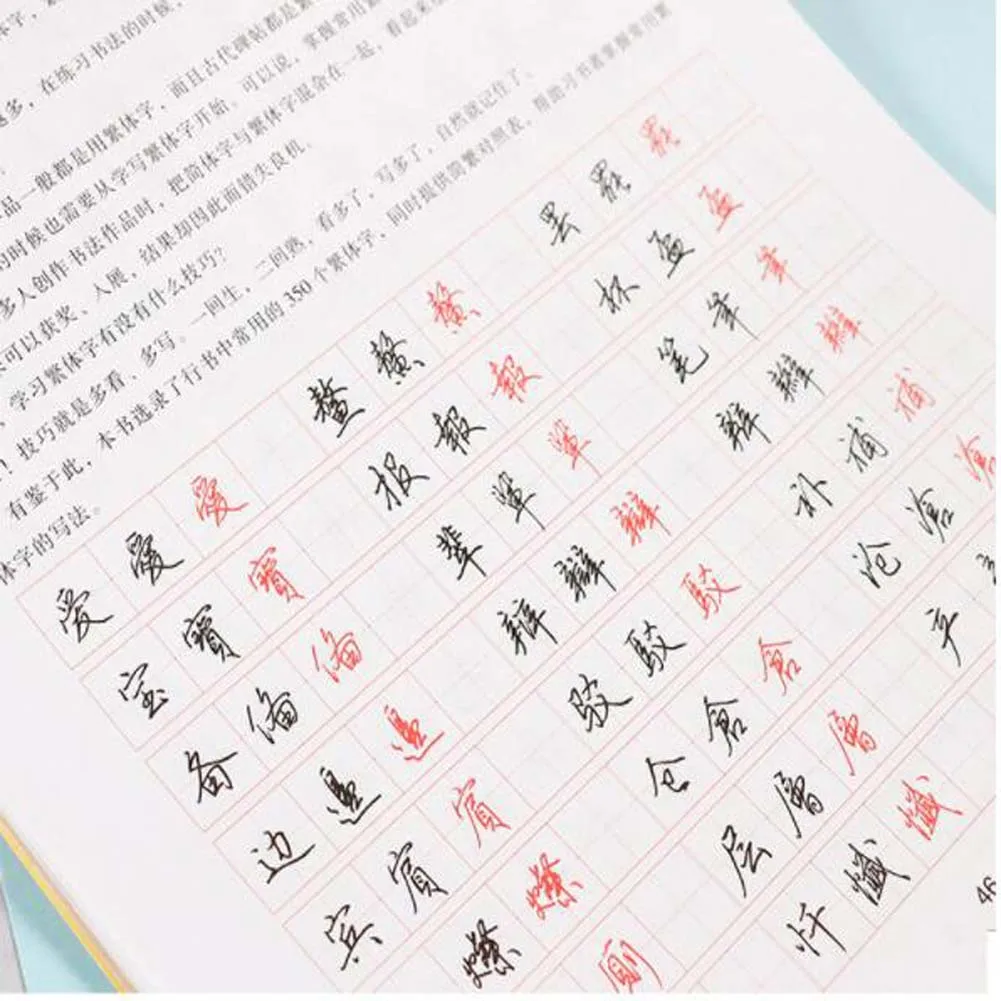 越多，在练习书法的时候，
品一般都是用繁体字，而且古代碑帖都是繁
的时候也需要从学写繁体字开始，可以说，掌握常用繁
多人创作书法作品时，把简体字与繁体字混杂在一起，看起来
可以获奖、入展，结果却因此而错失良机。
学习繁体字有没有什么技巧？
！技巧就是多看、多写。一回生，二回熟，看多了，写多了，自然就记住了。
有鉴于此，本书选录了行书中常用的350个繁体字，同时提供简繁对照表，帮助习书者掌握常用繁
体字的写法。
爱 愛 愛 鳌 鰲 鰲 罢 罷 罷
宝 寶 寶 报 報 報 杯 盃 盃
备 備 備 辈 輩 輩 笔 筆 筆
边 邊 邊 辩 辯 辯 辫 辮 辮
宾 賓 賓 驳 駁 駁 补 補 補
燦 燦 仓 倉 倉 沧 滄 滄
厠 层 層 層 产
忏 懺 懺
46